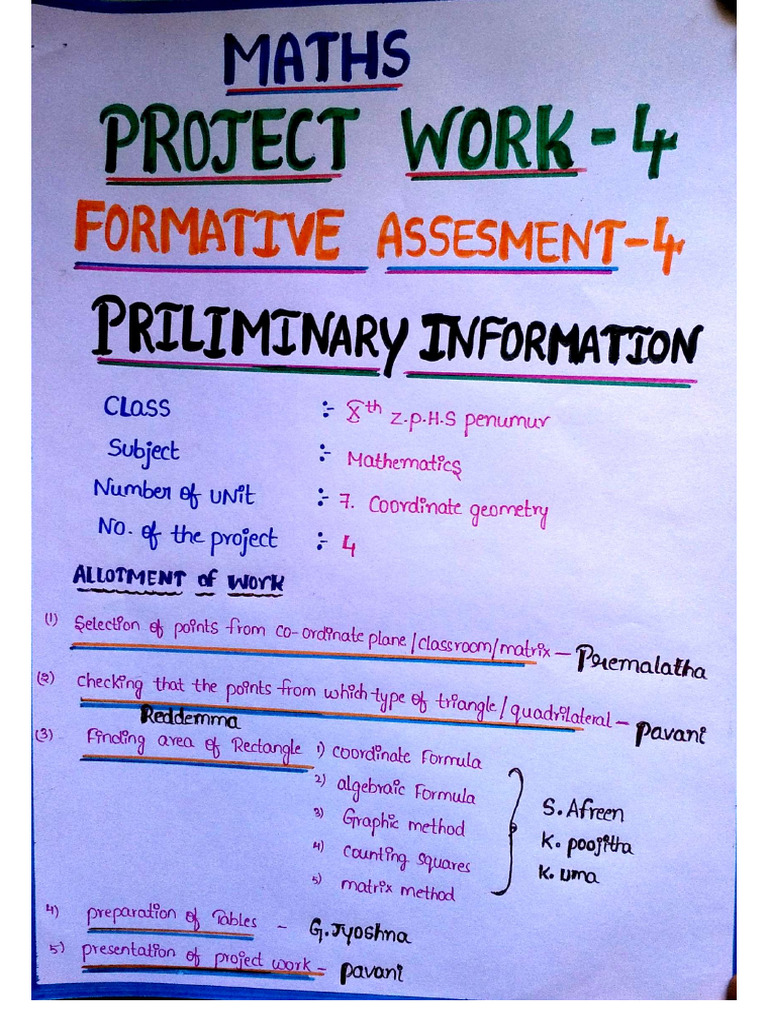 MATHS
PROJECT WORK - 4
FORMATIVE ASSESMENT-4
PRILIMINARY INFORMATION
CLASS :- Xth Z.P.H.S penumur
Subject :- Mathematics
Number of UNIT :- 7. Coordinate geometry
No. of the project :- 4
ALLOTMENT of WORK
(1) Selection of points from co-ordinate plane/classroom/matrix - Premalatha
(2) checking that the points from which type of triangle/quadrilateral - pavani
Reddemma
(3) Finding area of Rectangle 1) coordinate Formula
2) algebraic Formula
3) Graphic method
4) counting squares
5) matrix method
S. Afreen
K. poojitha
K. uma
4) preparation of Tables - G. Jyoshna
5) presentation of project work - pavani